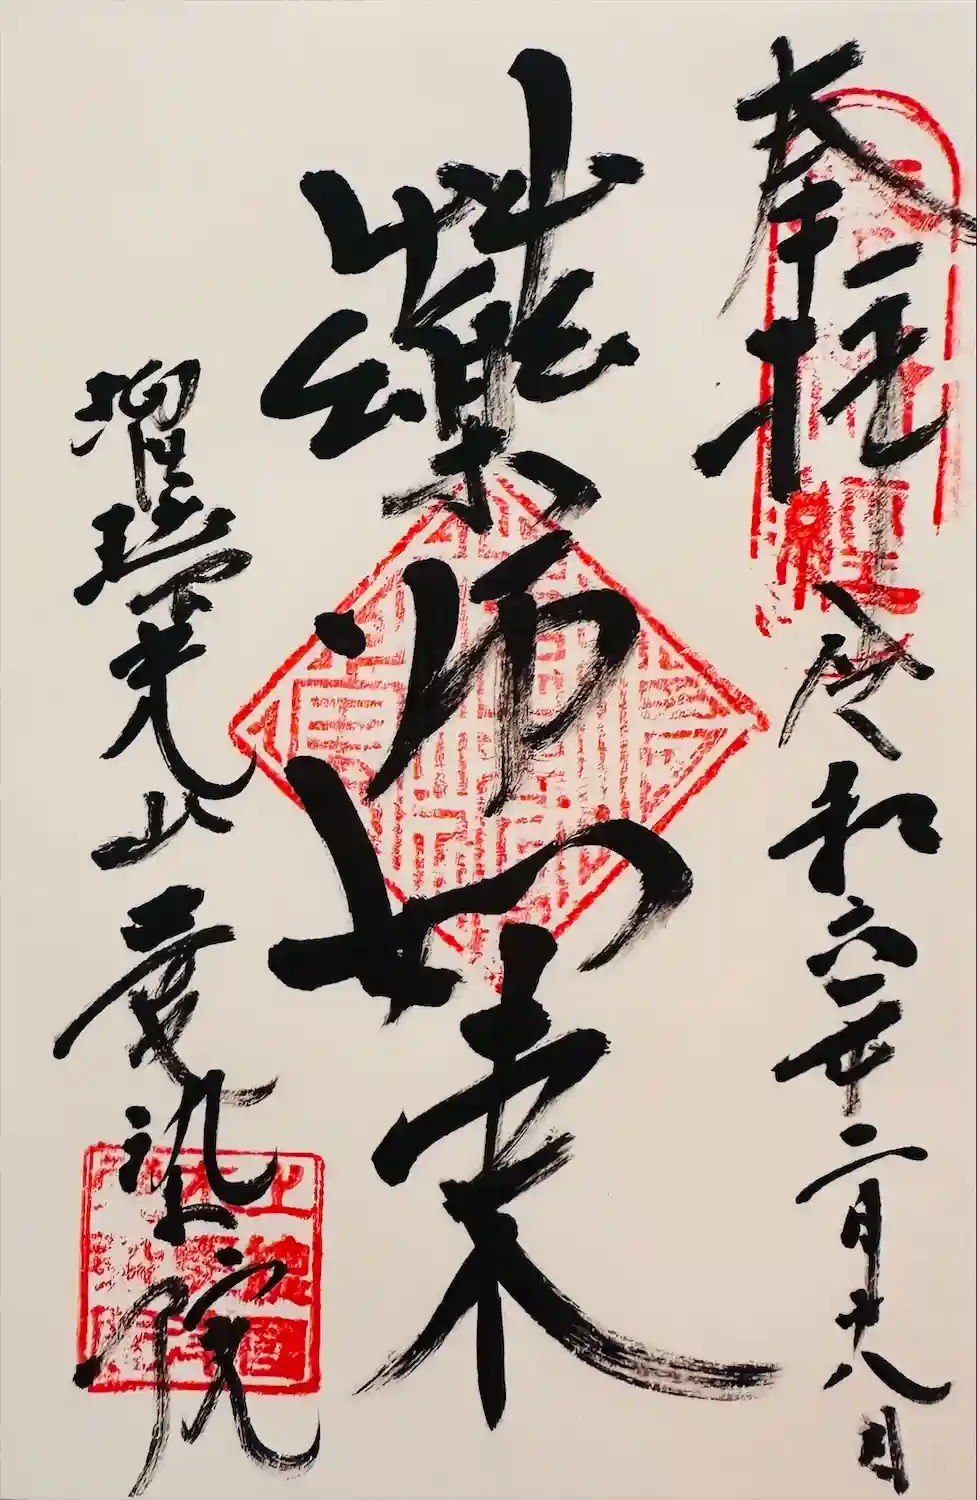 奉拝　令和六年二月十八日
藥師如来
瑠璃光山　愛染院